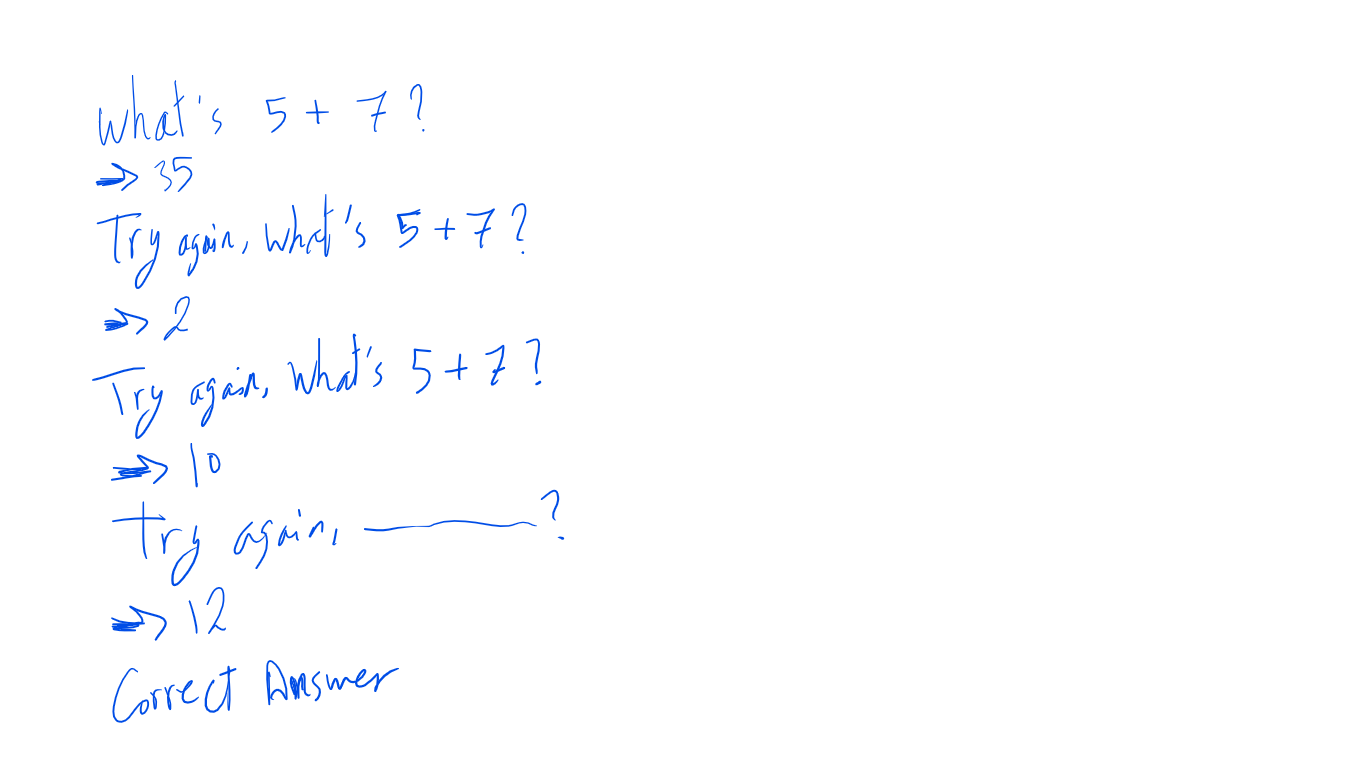 What's 5 + 7 ?
=> 35
Try again, what's 5 + 7 ?
=> 2
Try again, what's 5 + 7 ?
=> 10
Try again, ———— ?
=> 12
Correct Answer